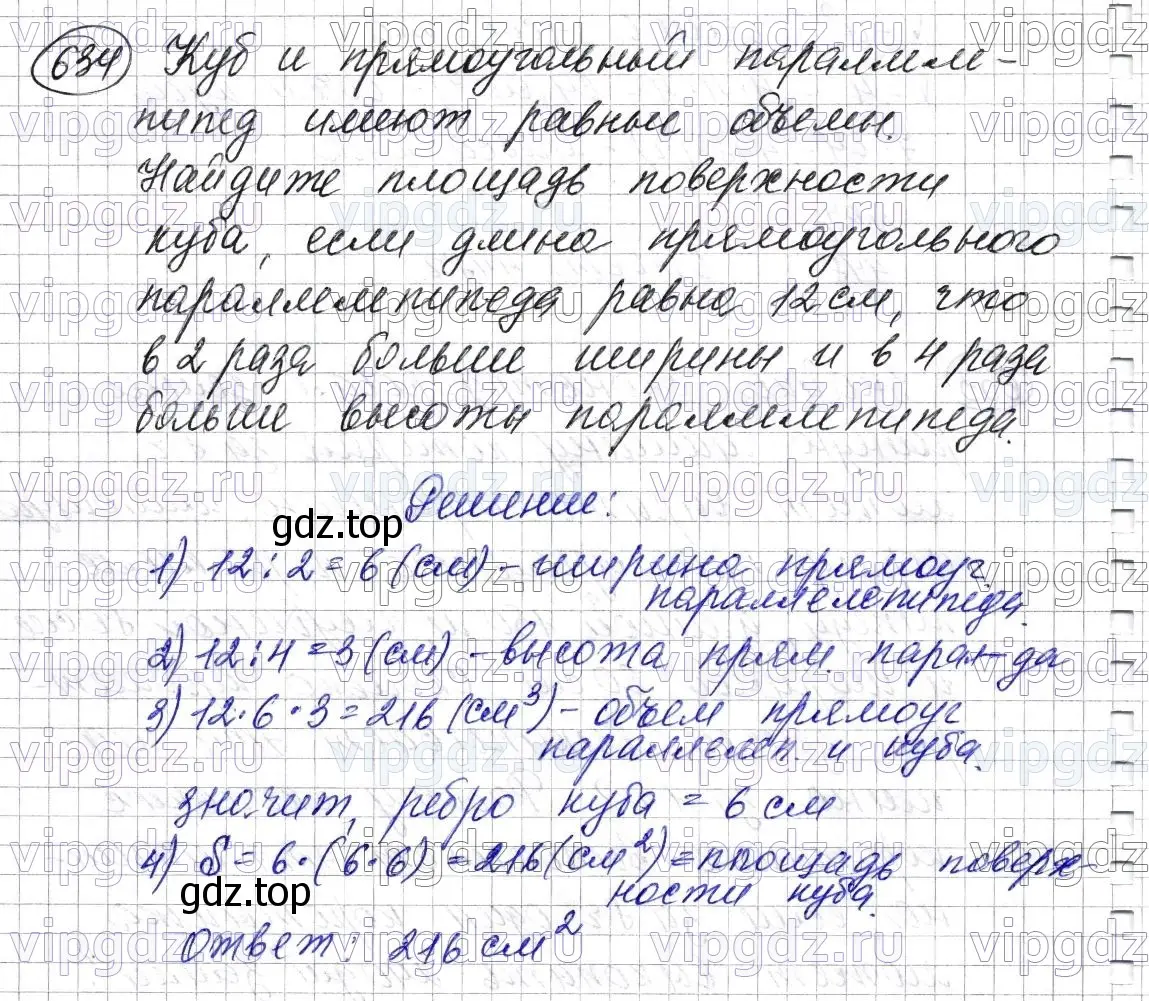 634 Куб и прямоугольный параллеле-
пипед имеют равные объемы.
Найдите площадь поверхности
куба, если длина прямоугольного
параллелепипеда равна 12 см, что
в 2 раза больше ширины и в 4 раза
больше высоты параллелепипеда.
Решение:
gdz.top
1) 12 : 2 = 6 (см) - ширина прямоуг.
параллелепипеда.
2) 12 : 4 = 3 (см) - высота прям. парал-да
3) 12 · 6 · 3 = 216 (см³) - объем прямоуг
параллелеп. и куба.
значит, ребро куба = 6 см
4) S = 6 · (6 · 6) = 216 (см²) = площадь поверх-
ности куба.
gdz.top
Ответ: 216 см²